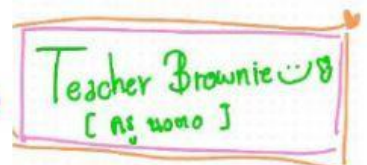 Teacher Brownie
[ ครู บอตอ ]